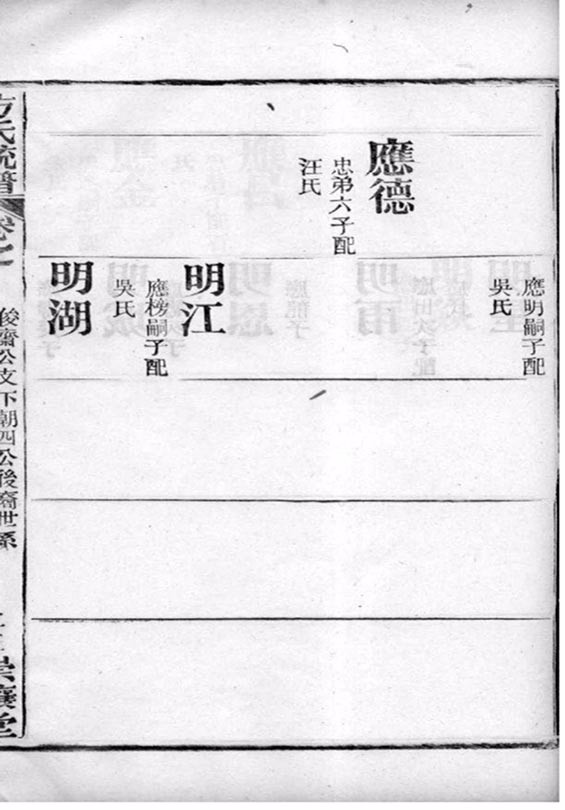 應德
忠弟六子配
汪氏
應明嗣子配
吳氏
明江
應榜嗣子配
吳氏
明湖
方氏統譜
卷之
後裔公支下朝四公後裔世系
崇讓堂